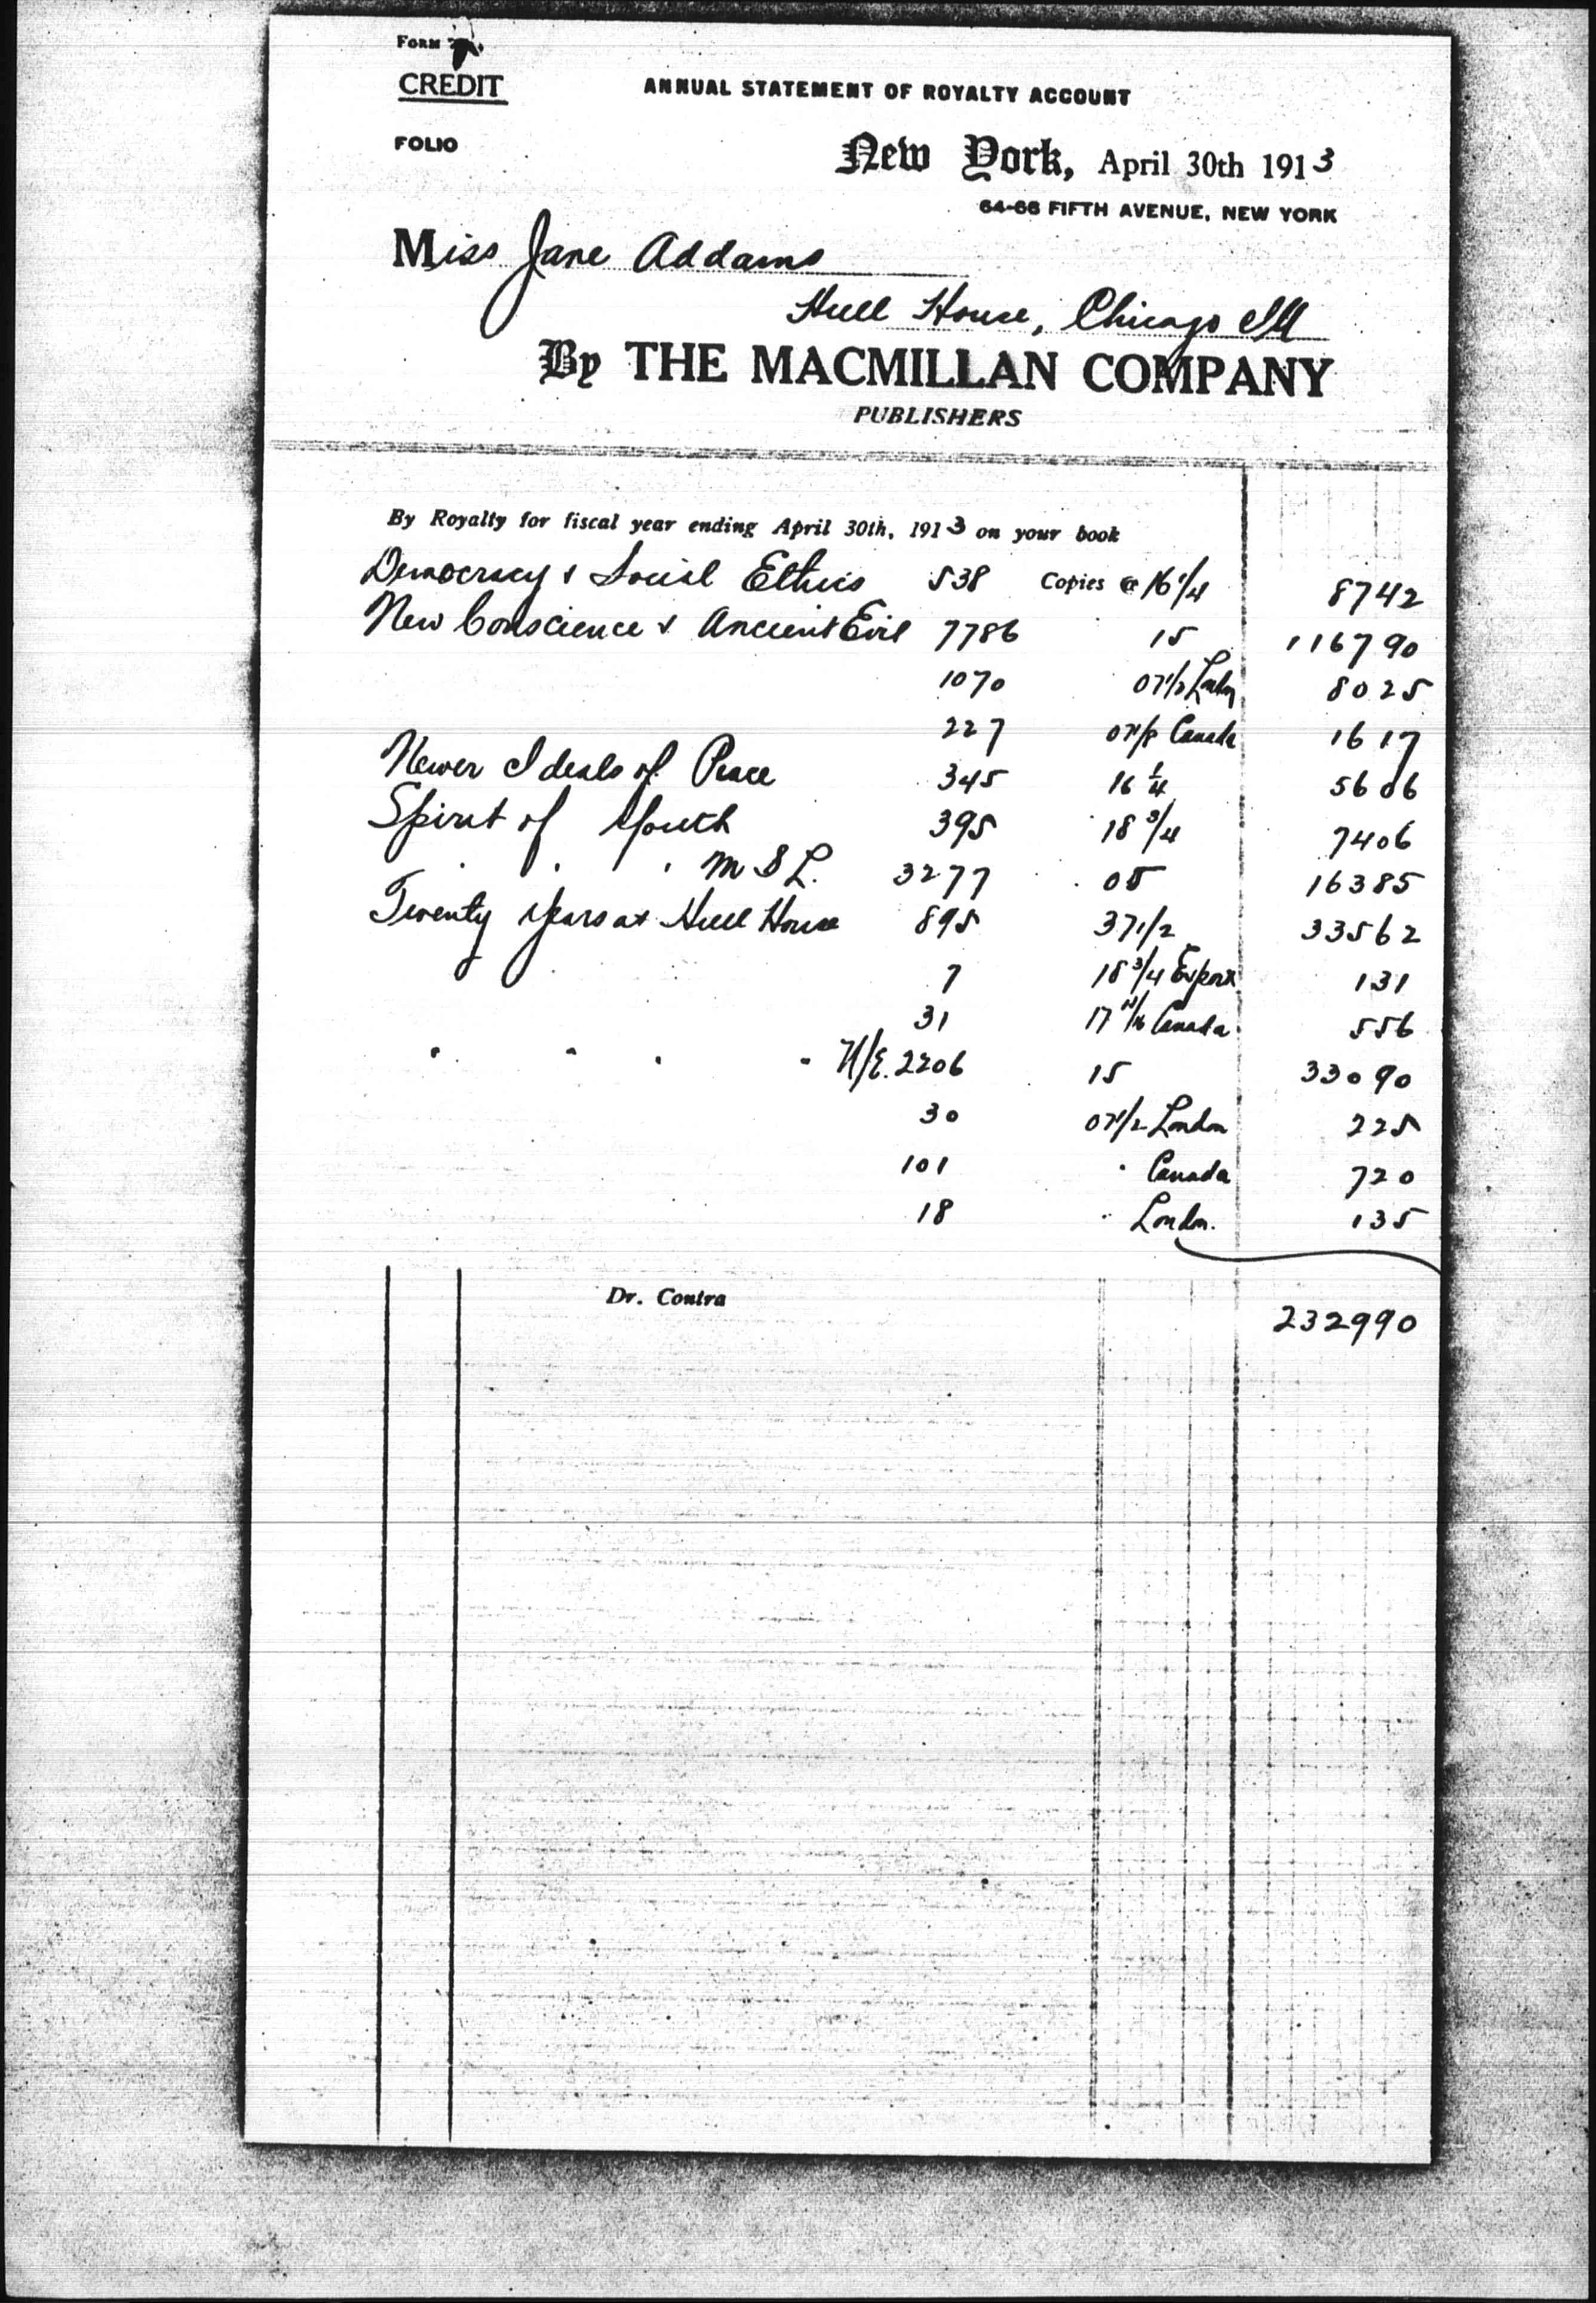 FORM
CREDIT
ANNUAL STATEMENT OF ROYALTY ACCOUNT
FOLIO
New York, April 30th 1913
64-66 FIFTH AVENUE, NEW YORK
Miss Jane Addams
Hull House, Chicago Ill
By THE MACMILLAN COMPANY
PUBLISHERS
By Royalty for fiscal year ending April 30th, 1913 on your book
Democracy & Social Ethics 538 Copies @ 16 1/4 8742
New Conscience & Ancient Evil 7786 15 116790
1070 07 1/2 8025
227 07 1/8 Canada 1617
Newer Ideals of Peace 345 16 1/4 5606
Spirit of Youth 395 18 3/4 7406
" " " M S L. 3277 05 16385
Twenty Years at Hull House 895 37 1/2 33562
7 18 3/4 Export 131
31 17 Canada 556
" " " " N/E. 2206 15 33090
30 07 1/2 London 225
101 " Canada 720
18 " London. 135
Dr. Contra
232990